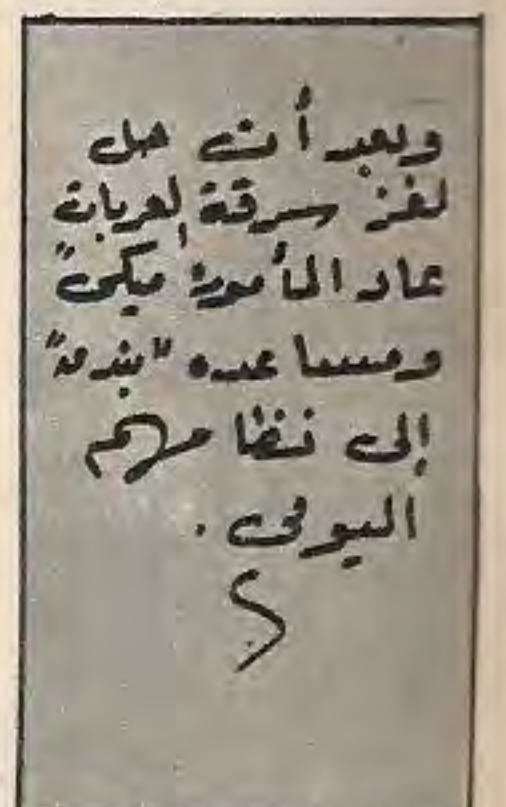 وبعد أن حل
لغز سرقة العربات
عاد المأمور "ميكى"
ومساعده "بندق"
إلى نظامهم
اليومى .